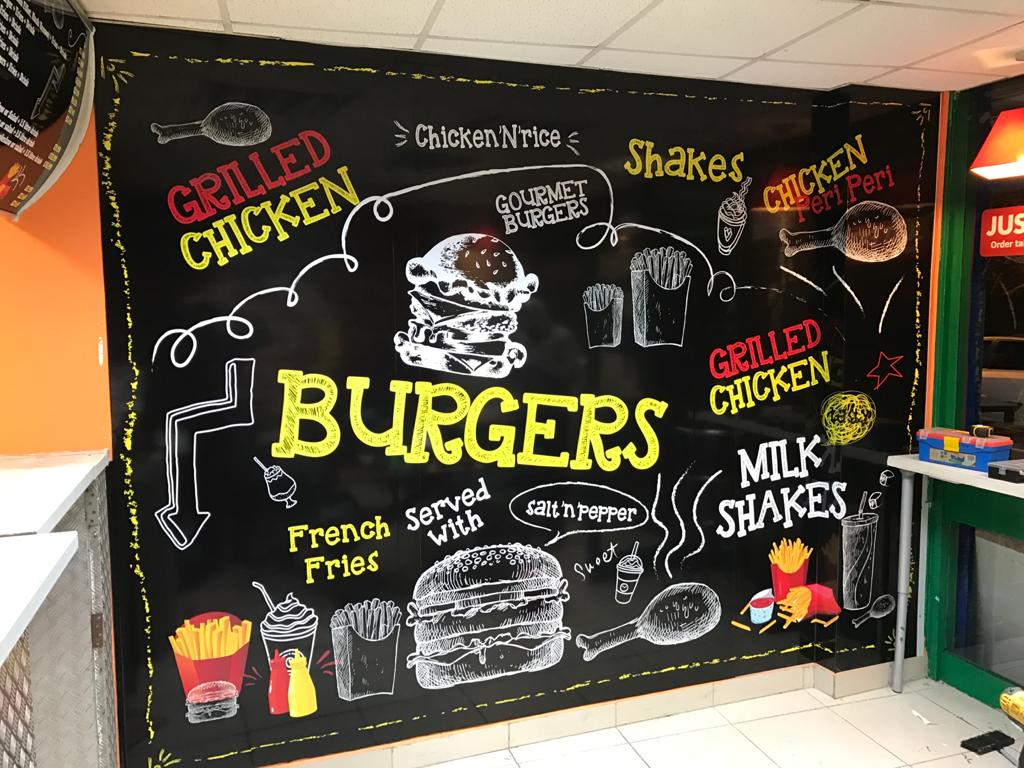 Chicken'N'rice
GRILLED
CHICKEN
GOURMET
BURGERS
Shakes
CHICKEN
Peri Peri
JUS
Order ta
GRILLED
CHICKEN
BURGERS
MILK
SHAKES
served
with
salt'n'pepper
French
Fries
Sweet